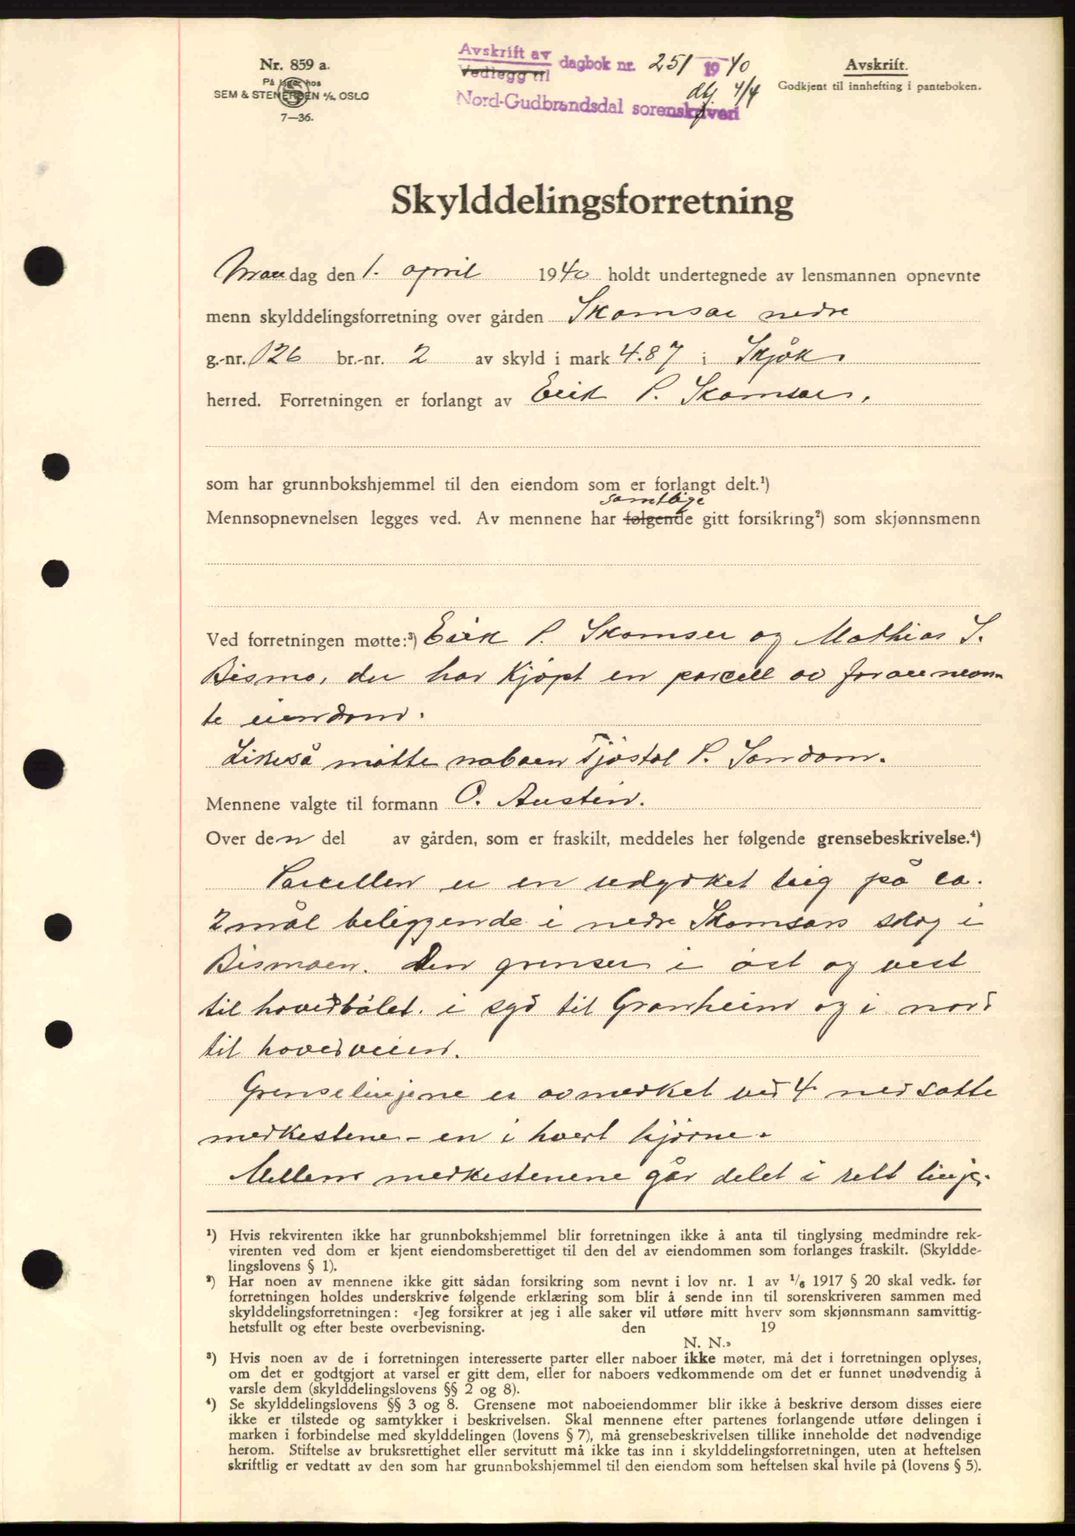 Nr. 859 a.
På lager hos
SEM & STENERSEN A/S, OSLO
7—36.
Avskrift av
Vedlegg til
dagbok nr. 251 1940
dbj 4/4
Nord-Gudbrandsdal sorenskriveri
Avskrift.
Godkjent til innhefting i panteboken.
Skylddelingsforretning
Mandag den 1. april 1940 holdt undertegnede av lensmannen opnevnte
menn skylddelingsforretning over gården Skamsar nedre
g.-nr. 126 br.-nr. 2 av skyld i mark 4.87 i Skjåk.
herred. Forretningen er forlangt av Erik P. Skamsar.
som har grunnbokshjemmel til den eiendom som er forlangt delt.¹)
samtlige
Mennsopnevnelsen legges ved. Av mennene har følgende gitt forsikring²) som skjønnsmenn
Ved forretningen møtte:³) Erik P. Skamsar og Mathias S.
Bismo, der har kjøpt en parcell av forannevn-
te eiendom.
Likeså møtte naboen Tjøstol P. Sandom.
Mennene valgte til formann O. Austin.
Over den del av gården, som er fraskilt, meddeles her følgende grensebeskrivelse.⁴)
Parcellen er en udyrket teig på ca.
2 mål beliggende i nedre Skamsars skog i
Bismoen. Den grenser i øst og vest
til hovedbølet. i syd til Granheim og i nord
til hovedveien.
Grenselinjene er avmerket ved 4 nedsatte
merkestene - en i hvert hjørne.
Mellem merkestenene går delet i rett linje.
¹) Hvis rekvirenten ikke har grunnbokshjemmel blir forretningen ikke å anta til tinglysing medmindre rek-
virenten ved dom er kjent eiendomsberettiget til den del av eiendommen som forlanges fraskilt. (Skyldde-
lingslovens § 1).
²) Har noen av mennene ikke gitt sådan forsikring som nevnt i lov nr. 1 av 1/6 1917 § 20 skal vedk. før
forretningen holdes underskrive følgende erklæring som blir å sende inn til sorenskriveren sammen med
skylddelingsforretningen: «Jeg forsikrer at jeg i alle saker vil utføre mitt hverv som skjønnsmann samvittig-
hetsfullt og efter beste overbevisning. den 19
N. N.»
³) Hvis noen av de i forretningen interesserte parter eller naboer ikke møter, må det i forretningen oplyses,
om det er godtgjort at varsel er gitt dem, eller for naboers vedkommende om det er funnet unødvendig å
varsle dem (skylddelingslovens §§ 2 og 8).
⁴) Se skylddelingslovens §§ 3 og 8. Grensene mot naboeiendommer blir ikke å beskrive dersom disses eiere
ikke er tilstede og samtykker i beskrivelsen. Skal mennene efter partenes forlangende utføre delingen i
marken i forbindelse med skylddelingen (lovens § 7), må grensebeskrivelsen tillike inneholde det nødvendige
herom. Stiftelse av bruksrettighet eller servitutt må ikke tas inn i skylddelingsforretningen, uten at heftelsen
skriftlig er vedtatt av den som har grunnbokshjemmel til den eiendom som heftelsen skal hvile på (lovens § 5).